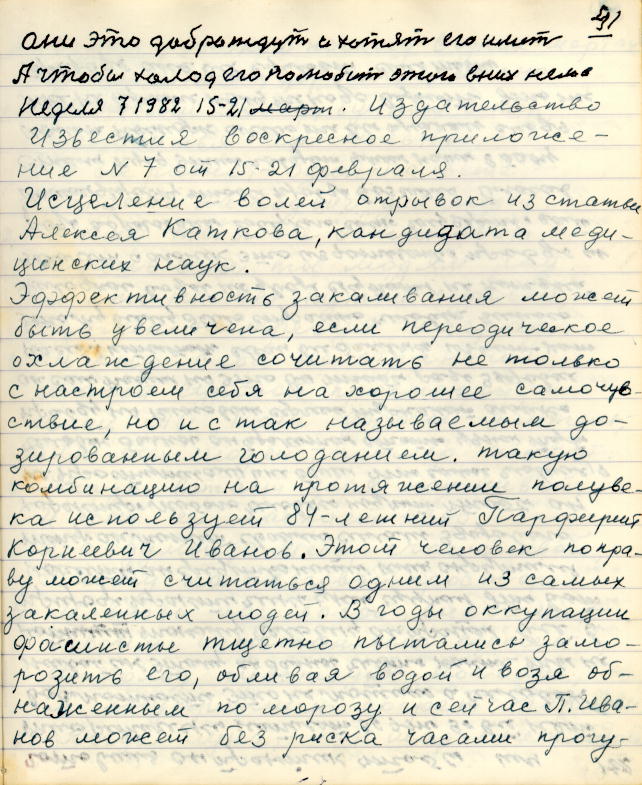 91
они это добро ждут и хотят его имет
А чтобы холод его полюбит этого в них нема
Неделя 7 1982 15-21 март. Издательство
Известия воскресное приложе-
ние N 7 от 15-21 февраля.
Исцеление волей отрывок из статьи
Алексея Каткова, кандидата меди-
цинских наук.
Эффективность закаливания может
быть увеличена, если переодическое
охлаждение сочитать не только
с настроем себя на хорошее самочув-
ствие, но и с так называемым до-
зированным голоданием. такую
комбинацию на протяжении полуве-
ка использует 84-летний Парфирий
Корнеевич Иванов. Этот человек попра-
ву может считаться одним из самых
закаленных людей. В годы оккупации
фашисты тщетно пытались замо-
розить его, обливая водой и возя об-
наженным по морозу и сейчас П. Ива-
нов может без риска часами прогу-